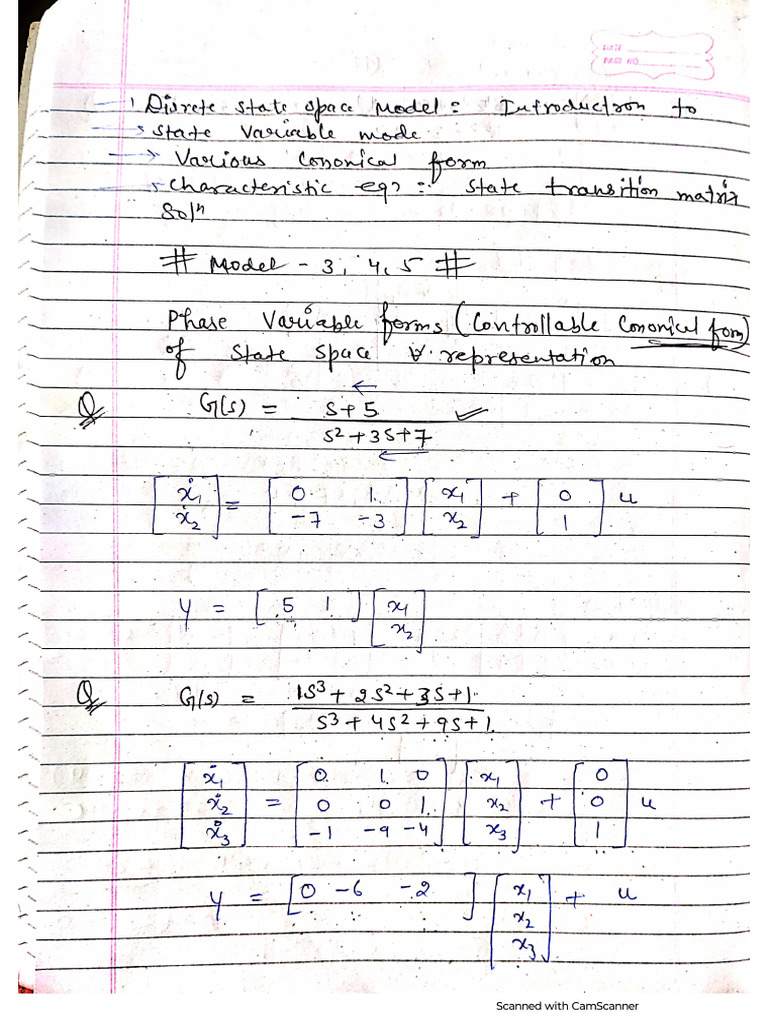 DATE
PAGE NO.
Disrete state space Model: Introduction to
→ state Variable mode
→ Various Cononical form
→ characteristic eqn :- state transition matrix
Soln
# Model - 3, 4, 5 #
Phase Variable forms (Controllable Cononical form)
of state space ∀ representation
Q G(s) = s+5 ✓
s²+3s+7
[ẋ1 ẋ2] = [0 1 -7 -3] [x1 x2] + [0 1] u
y = [5 1] [x1 x2]
Q G(s) = 1s³+2s²+3s+1
s³+4s²+9s+1
[ẋ1 ẋ2 ẋ3] = [0 1 0 0 0 1 -1 -9 -4] [x1 x2 x3] + [0 0 1] u
y = [0 -6 -2] [x1 x2 x3] + u
Scanned with CamScanner